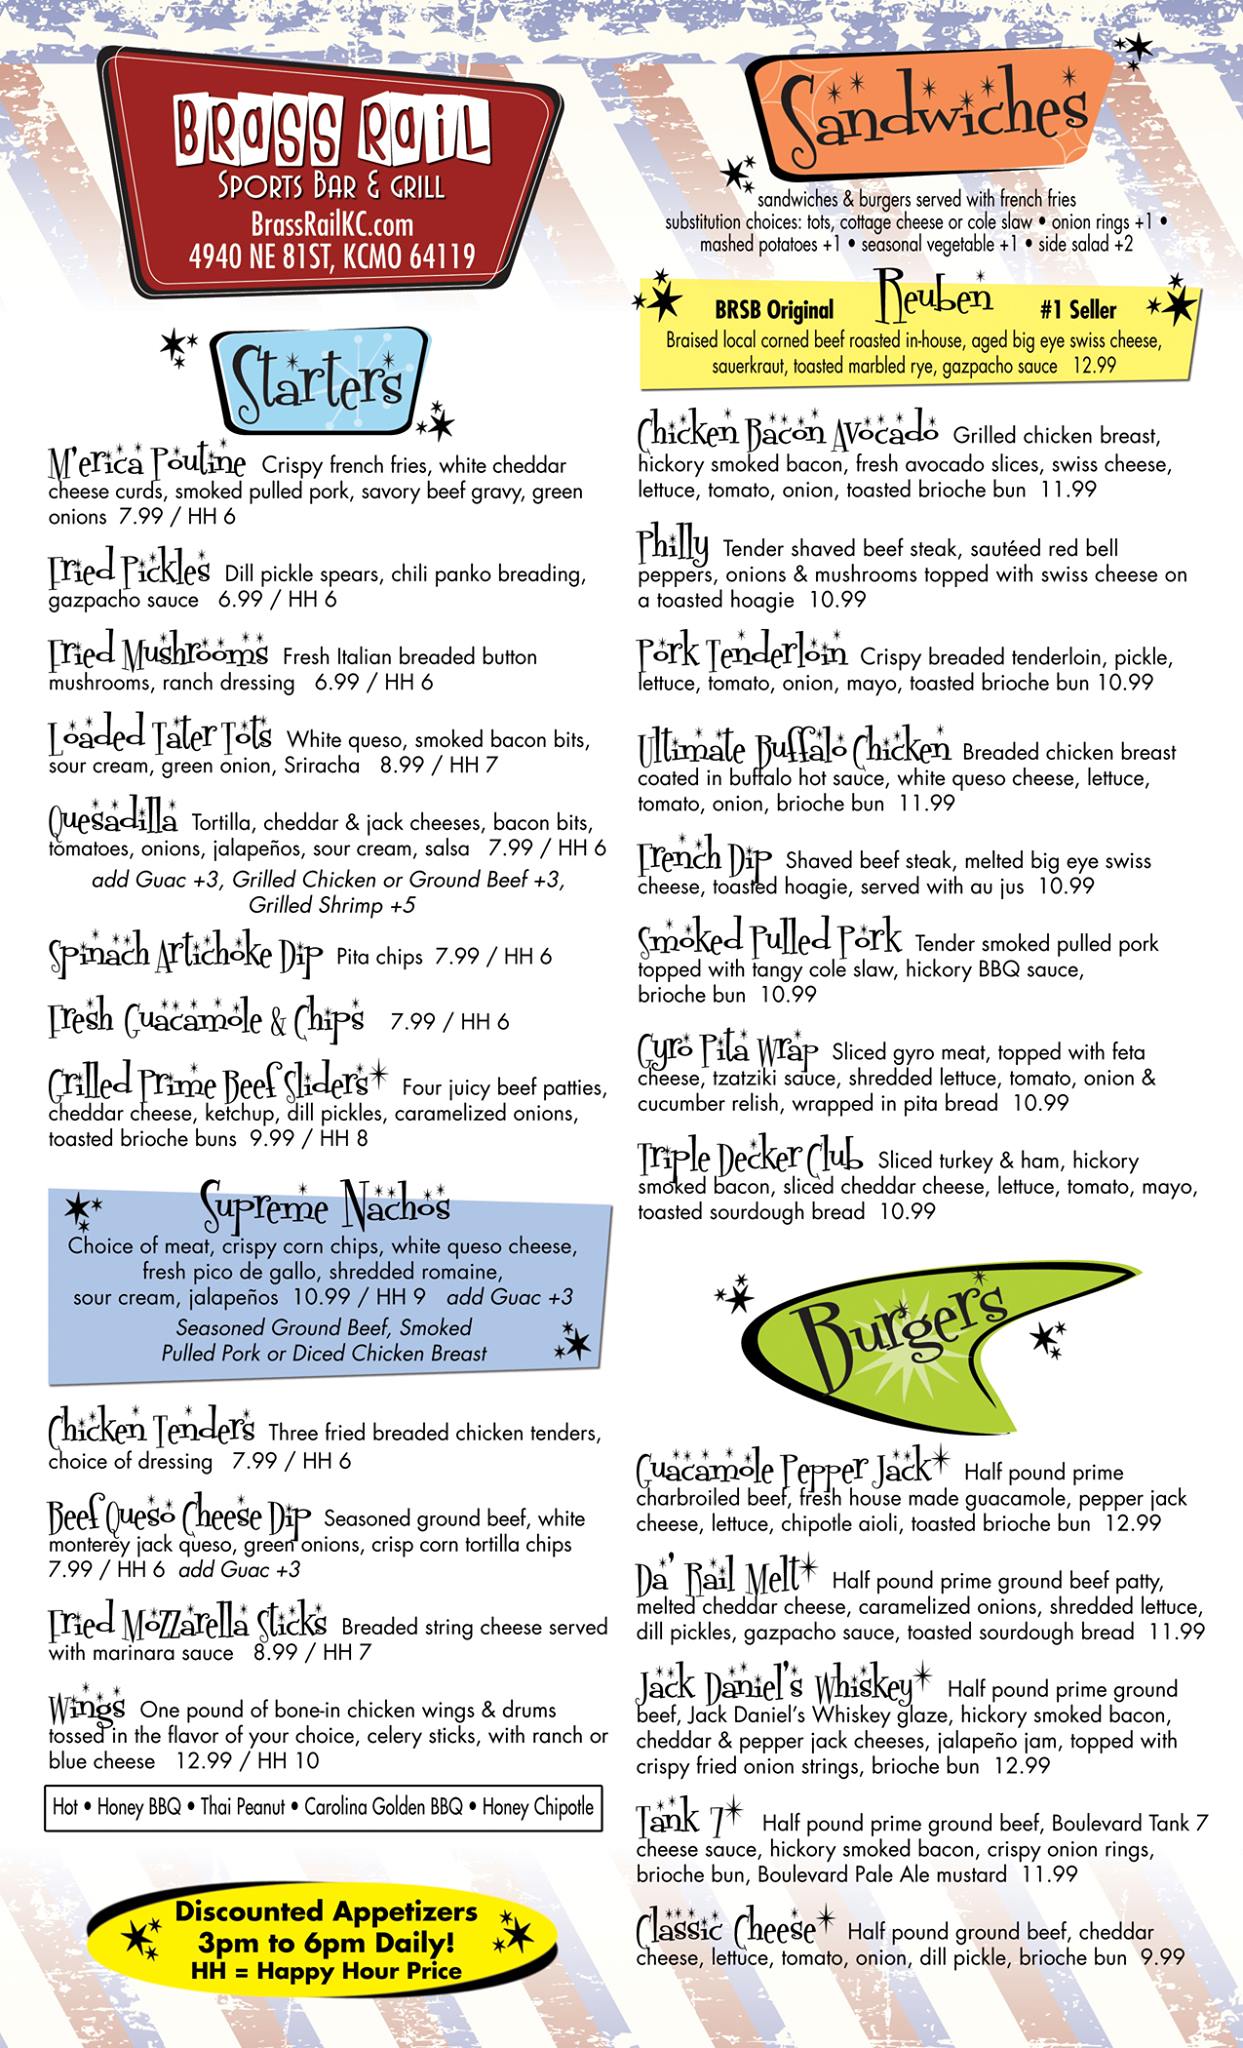 Brass Rail
Sports Bar & Grill
BrassRailKC.com
4940 NE 81ST, KCMO 64119
Starters
M'erica Poutine Crispy french fries, white cheddar
cheese curds, smoked pulled pork, savory beef gravy, green
onions 7.99 / HH 6
Fried Pickles Dill pickle spears, chili panko breading,
gazpacho sauce 6.99 / HH 6
Fried Mushrooms Fresh Italian breaded button
mushrooms, ranch dressing 6.99 / HH 6
Loaded Tater Tots White queso, smoked bacon bits,
sour cream, green onion, Sriracha 8.99 / HH 7
Quesadilla Tortilla, cheddar & jack cheeses, bacon bits,
tomatoes, onions, jalapeños, sour cream, salsa 7.99 / HH 6
add Guac +3, Grilled Chicken or Ground Beef +3,
Grilled Shrimp +5
Spinach Artichoke Dip Pita chips 7.99 / HH 6
Fresh Guacamole & Chips 7.99 / HH 6
Grilled Prime Beef Sliders* Four juicy beef patties,
cheddar cheese, ketchup, dill pickles, caramelized onions,
toasted brioche buns 9.99 / HH 8
Supreme Nachos
Choice of meat, crispy corn chips, white queso cheese,
fresh pico de gallo, shredded romaine,
sour cream, jalapeños 10.99 / HH 9 add Guac +3
Seasoned Ground Beef, Smoked
Pulled Pork or Diced Chicken Breast
Chicken Tenders Three fried breaded chicken tenders,
choice of dressing 7.99 / HH 6
Beef Queso Cheese Dip Seasoned ground beef, white
monterey jack queso, green onions, crisp corn tortilla chips
7.99 / HH 6 add Guac +3
Fried Mozzarella Sticks Breaded string cheese served
with marinara sauce 8.99 / HH 7
Wings One pound of bone-in chicken wings & drums
tossed in the flavor of your choice, celery sticks, with ranch or
blue cheese 12.99 / HH 10
Hot • Honey BBQ • Thai Peanut • Carolina Golden BBQ • Honey Chipotle
Discounted Appetizers
3pm to 6pm Daily!
HH = Happy Hour Price
Sandwiches
sandwiches & burgers served with french fries
substitution choices: tots, cottage cheese or cole slaw • onion rings +1 •
mashed potatoes +1 • seasonal vegetable +1 • side salad +2
BRSB Original Reuben #1 Seller
Braised local corned beef roasted in-house, aged big eye swiss cheese,
sauerkraut, toasted marbled rye, gazpacho sauce 12.99
Chicken Bacon Avocado Grilled chicken breast,
hickory smoked bacon, fresh avocado slices, swiss cheese,
lettuce, tomato, onion, toasted brioche bun 11.99
Philly Tender shaved beef steak, sautéed red bell
peppers, onions & mushrooms topped with swiss cheese on
a toasted hoagie 10.99
Pork Tenderloin Crispy breaded tenderloin, pickle,
lettuce, tomato, onion, mayo, toasted brioche bun 10.99
Ultimate Buffalo Chicken Breaded chicken breast
coated in buffalo hot sauce, white queso cheese, lettuce,
tomato, onion, brioche bun 11.99
French Dip Shaved beef steak, melted big eye swiss
cheese, toasted hoagie, served with au jus 10.99
Smoked Pulled Pork Tender smoked pulled pork
topped with tangy cole slaw, hickory BBQ sauce,
brioche bun 10.99
Gyro Pita Wrap Sliced gyro meat, topped with feta
cheese, tzatziki sauce, shredded lettuce, tomato, onion &
cucumber relish, wrapped in pita bread 10.99
Triple Decker Club Sliced turkey & ham, hickory
smoked bacon, sliced cheddar cheese, lettuce, tomato, mayo,
toasted sourdough bread 10.99
Burgers
Guacamole Pepper Jack* Half pound prime
charbroiled beef, fresh house made guacamole, pepper jack
cheese, lettuce, chipotle aioli, toasted brioche bun 12.99
Da' Rail Melt* Half pound prime ground beef patty,
melted cheddar cheese, caramelized onions, shredded lettuce,
dill pickles, gazpacho sauce, toasted sourdough bread 11.99
Jack Daniel's Whiskey* Half pound prime ground
beef, Jack Daniel's Whiskey glaze, hickory smoked bacon,
cheddar & pepper jack cheeses, jalapeño jam, topped with
crispy fried onion strings, brioche bun 12.99
Tank 7* Half pound prime ground beef, Boulevard Tank 7
cheese sauce, hickory smoked bacon, crispy onion rings,
brioche bun, Boulevard Pale Ale mustard 11.99
Classic Cheese* Half pound ground beef, cheddar
cheese, lettuce, tomato, onion, dill pickle, brioche bun 9.99